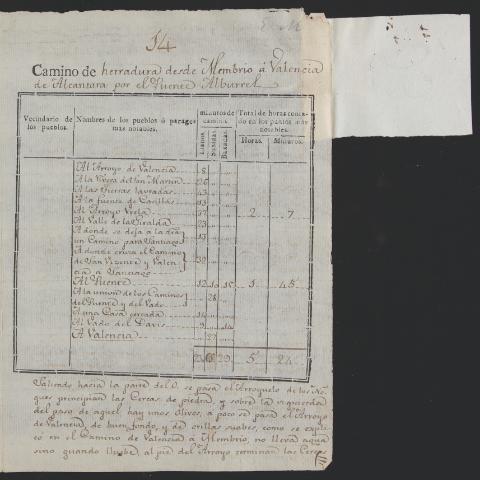 54
Camino de herradura desde Membrio á Valencia
de Alcantara por el Puente Alburrel
Vecindario de los pueblos.
Nombres de los pueblos ó parages mas notables.
minutos de camino.
Total de horas conta-
do en los puntos mas notables.
Llanos Subidas Baxadas
Horas. Minutos.
Al Arroyo de Valencia 8
A la Rivera de San Martin 26
A las tierras labradas 43
A la fuente de Casillas
Al Arroyo 37 2 7
Al Valle de la Giralda
A donde se deja a la
un Camino para Santiago 13
A donde cruza el Camino
de San Vizente y Valen-
cia a Santiago 32
Al Puente 12 1 45
A la union de los Caminos
del Puente y del Vado 28
A una Casa cercada 14
Al Vado del 9
A Valencia 27
29 5 24
Saliendo hacia la parte del O. se pasa el Arroyuelo de los
ques principian las Cercas de piedra, y sobre la izquierda
del paso de aquel hay unos Olivos, a poco se pasa el Arroyo
de Valencia, de buen fondo, y de orillas suabes, como se expli-
có en el Camino de Valencia á Membrio, no lleva agua
sino quando llueve, al pie del Arroyo terminan las Cercas